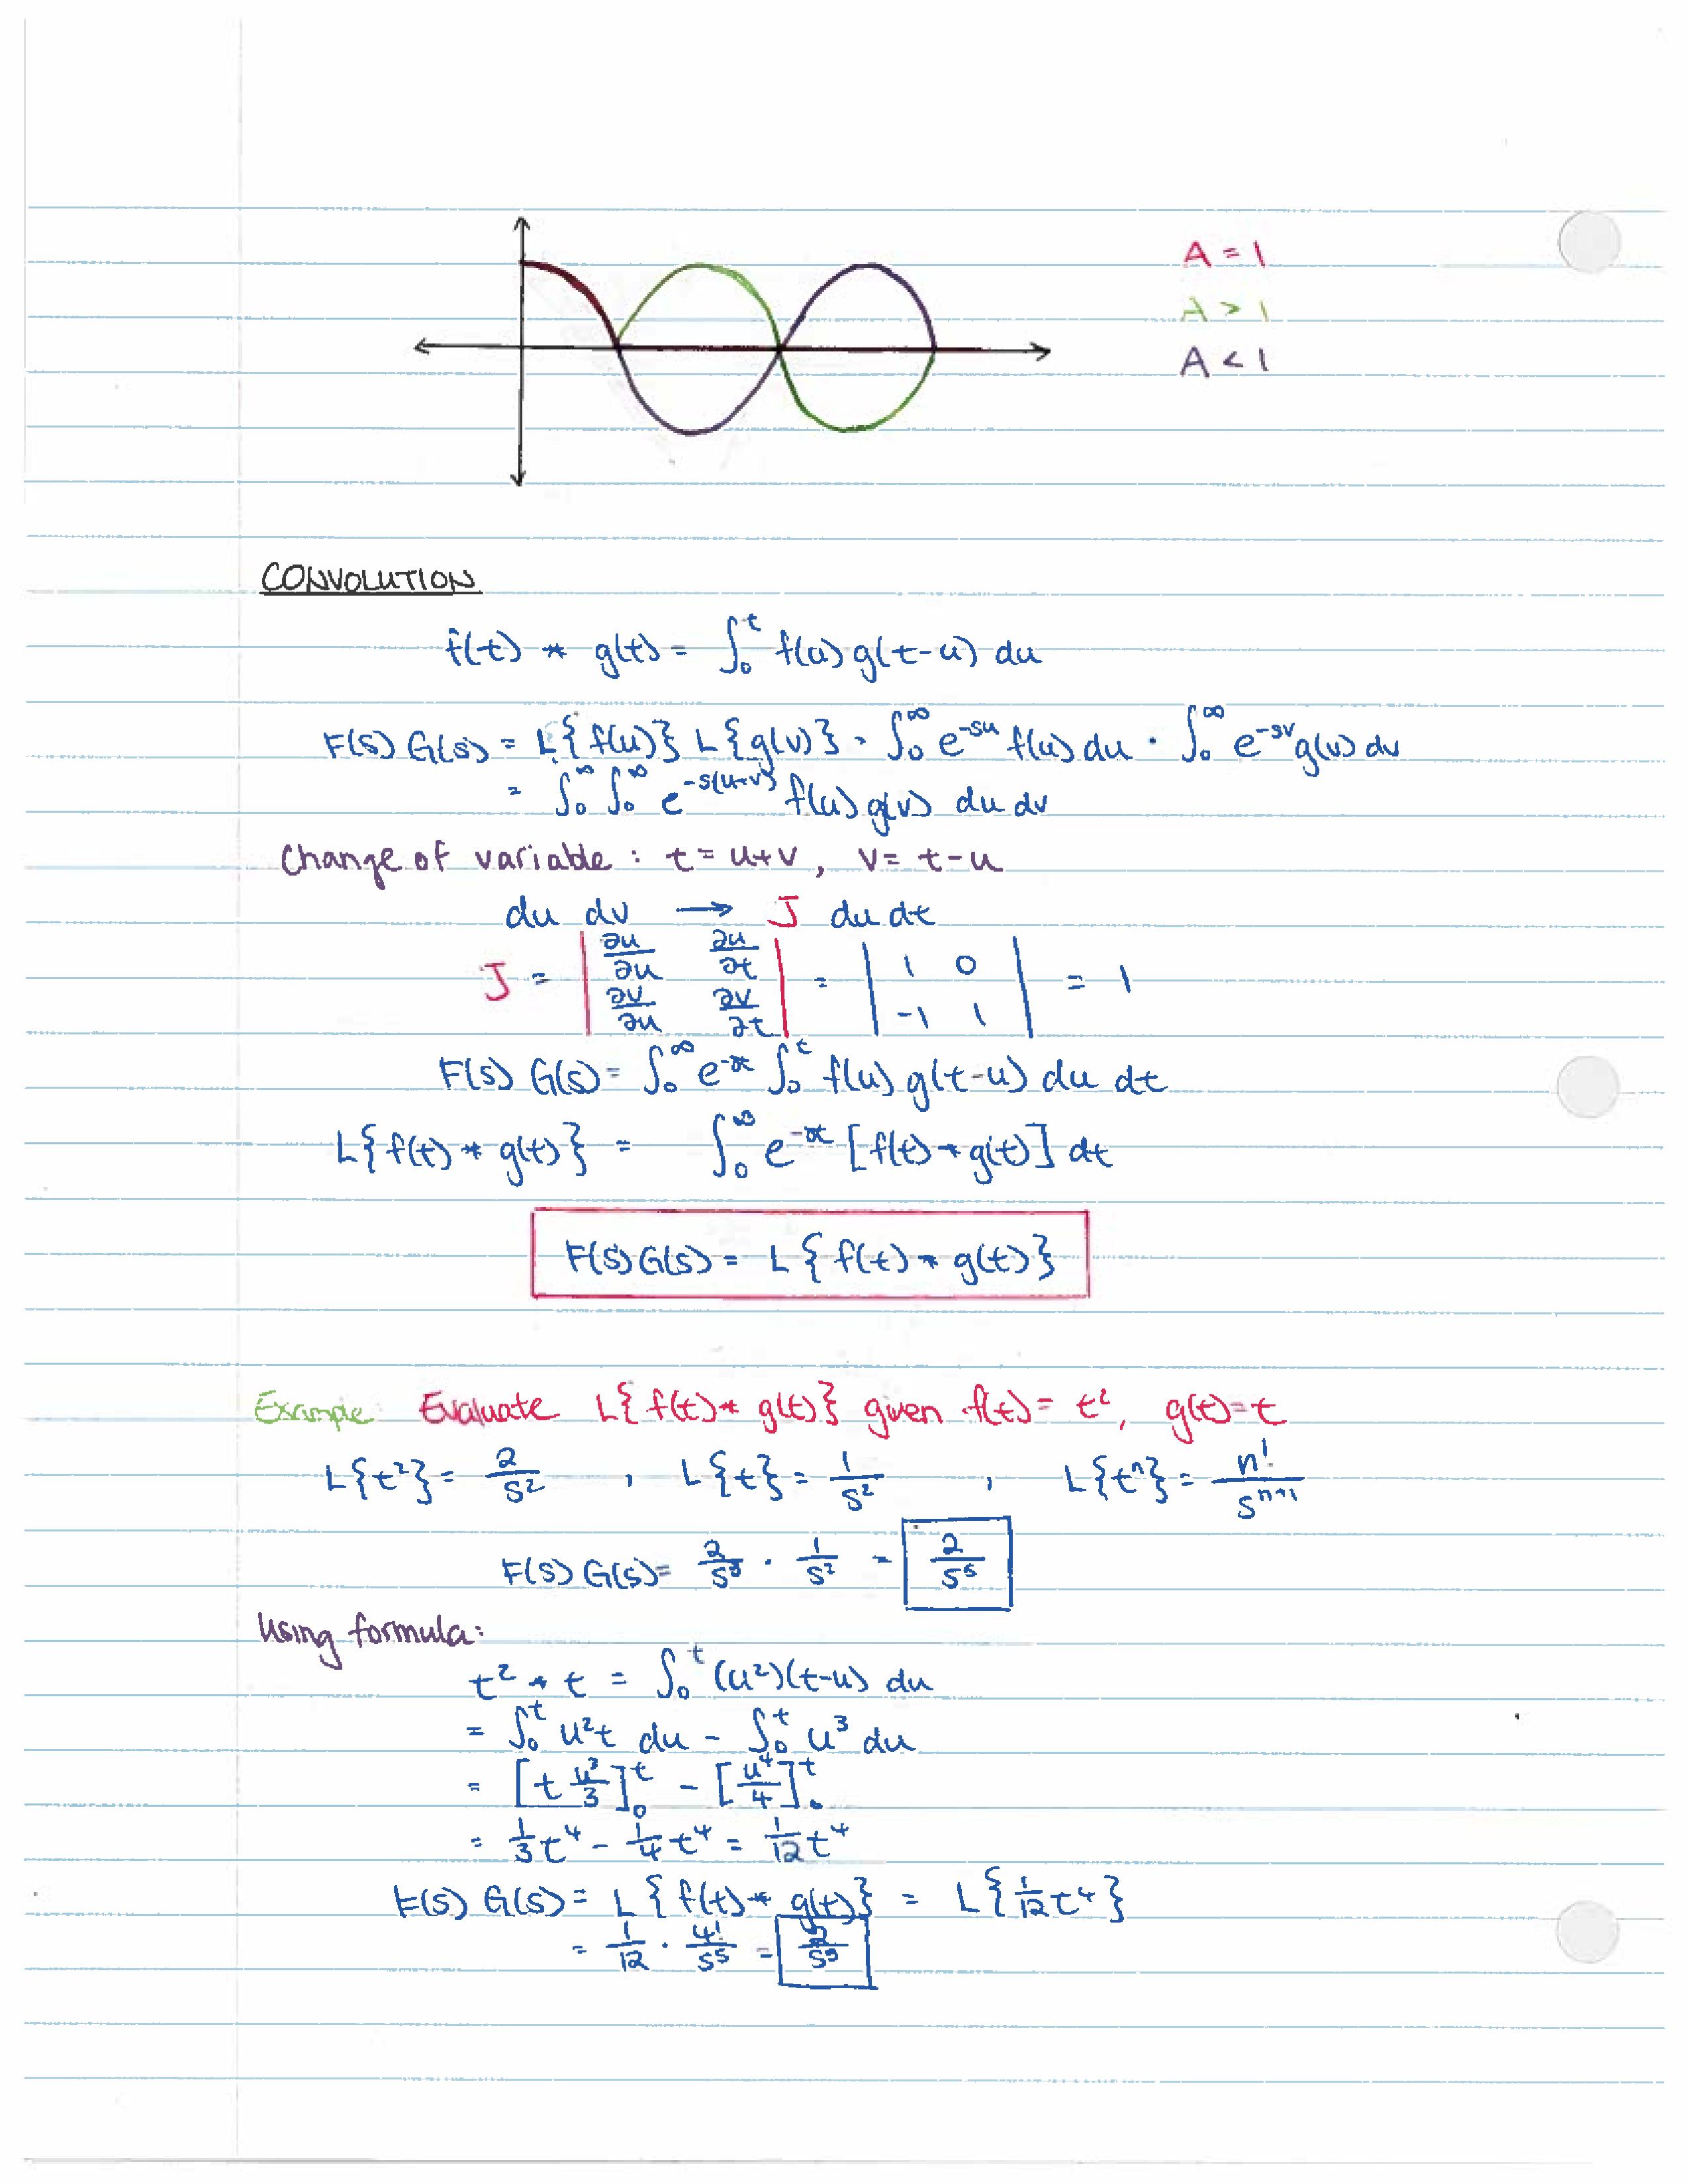 A = 1
A > 1
A < 1
CONVOLUTION
f(t) * g(t) = ∫₀ᵗ f(u) g(t-u) du
F(s) G(s) = L{f(u)} L{g(v)} = ∫₀^∞ e^-su f(u) du · ∫₀^∞ e^-sv g(v) dv
= ∫₀^∞ ∫₀^∞ e^-s(u+v) f(u) g(v) du dv
Change of variable : t = u+v, v = t-u
du dv → J du dt
J = | ∂u/∂u ∂u/∂t | = | 1 0 | = 1
| ∂v/∂u ∂v/∂t | | -1 1 |
F(s) G(s) = ∫₀^∞ e^-st ∫₀ᵗ f(u) g(t-u) du dt
L{f(t) * g(t)} = ∫₀^∞ e^-st [f(t) * g(t)] dt
F(s) G(s) = L{f(t) * g(t)}
Example: Evaluate L{f(t) * g(t)} given f(t) = t², g(t) = t
L{t²} = 2/s² , L{t} = 1/s² , L{tⁿ} = n!/sⁿ⁺¹
F(s) G(s) = 2/s³ · 1/s² = 2/s⁵
Using formula:
t² * t = ∫₀ᵗ (u²)(t-u) du
= ∫₀ᵗ u²t du - ∫₀ᵗ u³ du
= [t u³/3]₀ᵗ - [u⁴/4]₀ᵗ
= 1/3 t⁴ - 1/4 t⁴ = 1/12 t⁴
F(s) G(s) = L{f(t) * g(t)} = L{1/12 t⁴}
= 1/12 · 4!/s⁵ = 2/s⁵